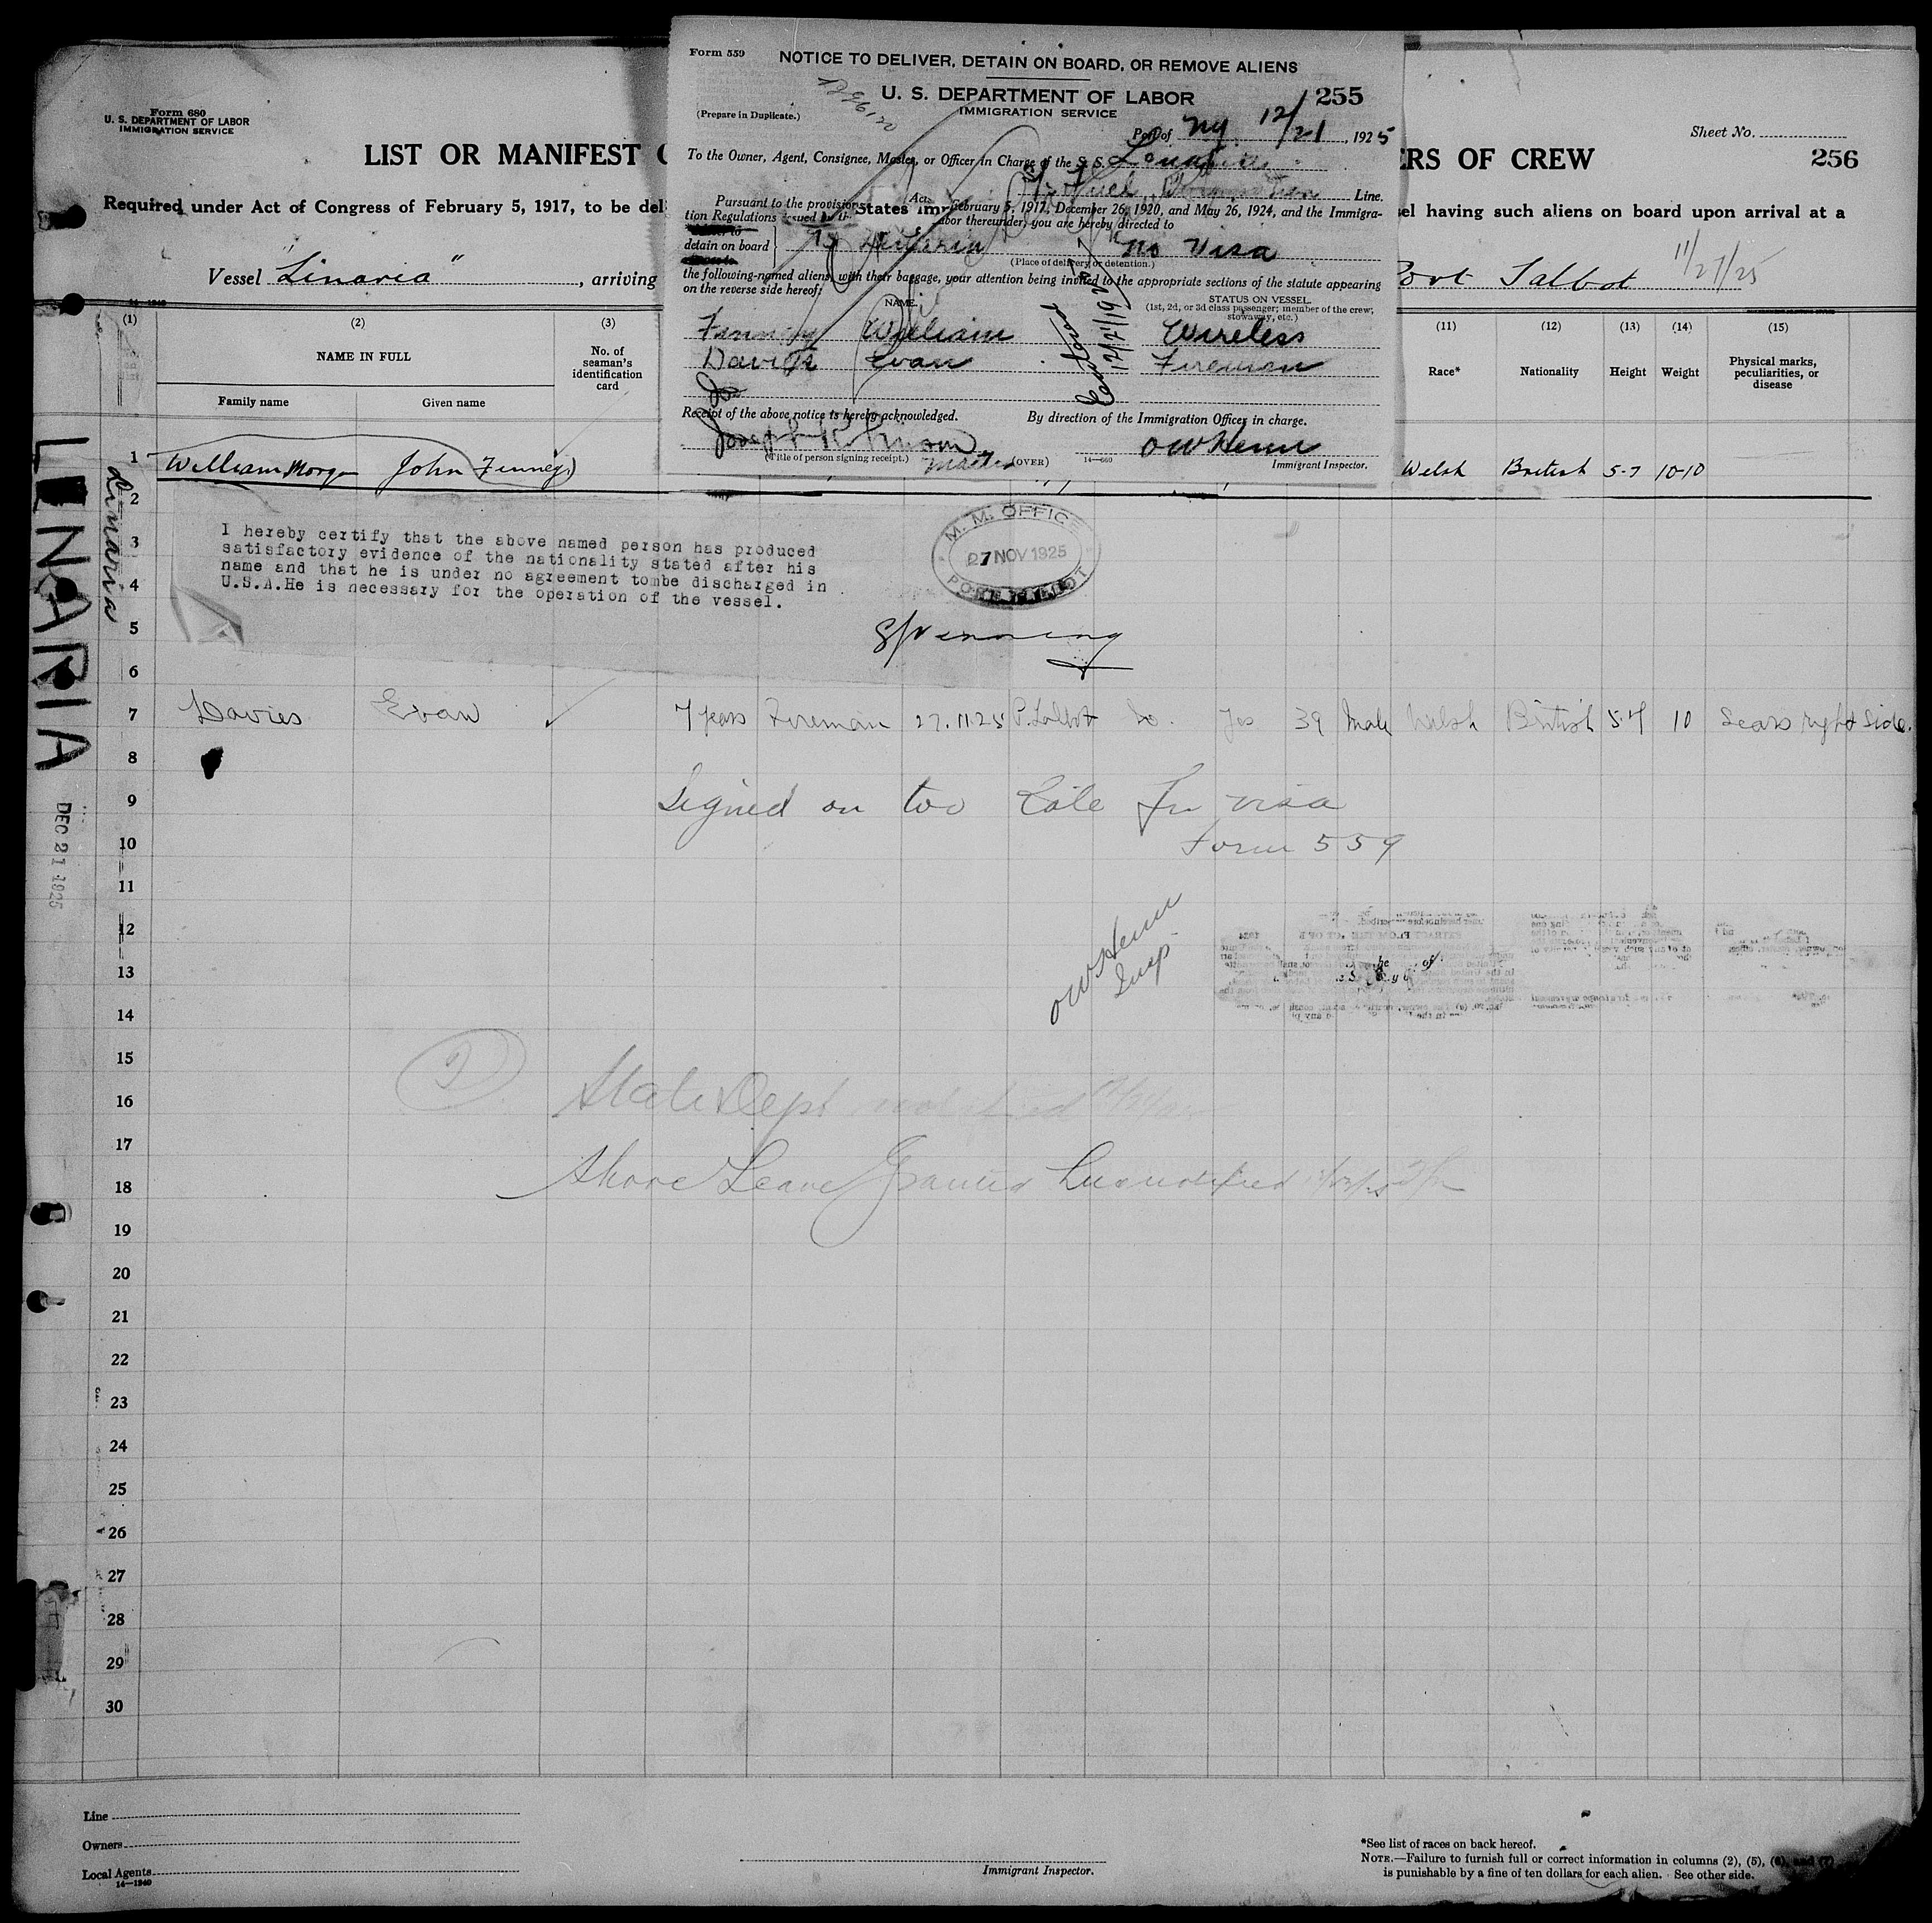 Form 559
NOTICE TO DELIVER, DETAIN ON BOARD, OR REMOVE ALIENS
U. S. DEPARTMENT OF LABOR
255
(Prepare in Duplicate.)
IMMIGRATION SERVICE
Port of NY 12/21, 1925
To the Owner, Agent, Consignee, Master, or Officer in Charge of the S. S.
Line.
Pursuant to the provisions
Act
February 5, 1917, December 26, 1920, and May 26, 1924, and the Immigra-
tion Regulations issued
States Imm
labor thereunder, you are hereby directed to
detain on board
no Visa
(Place of delivery or detention.)
the following-named aliens, with their baggage, your attention being invited to the appropriate sections of the statute appearing
on the reverse side hereof:
NAME.
STATUS ON VESSEL.
(1st, 2d, or 3d class passenger; member of the crew;
stowaway, etc.)
William Wireless
Davies Evan Fireman
Receipt of the above notice is hereby acknowledged.
By direction of the Immigration Officer in charge.
Joseph
OWHenn
(Title of person signing receipt.)
Master
(OVER)
14—660
Immigrant Inspector.
Form 680
U. S. DEPARTMENT OF LABOR
IMMIGRATION SERVICE
Sheet No.
LIST OR MANIFEST
ERS OF CREW
256
Required under Act of Congress of February 5, 1917, to be del
sel having such aliens on board upon arrival at a
Vessel "Linaria", arriving
Port Talbot 11/27/25
(1) (2) (3) (11) (12) (13) (14) (15)
NAME IN FULL
Family name Given name
No. of
seaman's
identification
card
Race* Nationality Height Weight
Physical marks,
peculiarities, or
disease
1 William Morga John Finney) Welsh British 5-7 10-10
2
3
4
5
6
I hereby certify that the above named person has produced
satisfactory evidence of the nationality stated after his
name and that he is under no agreement tombe discharged in
U.S.A.He is necessary for the operation of the vessel.
M. M. OFFICE
27 NOV 1925
LINARIA
Linaria
DEC 21 1925
7 Davies Evan 7 years Fireman 27.11.25 P.Talbot do. Yes 39 Male Welsh British 5.7 10 Scars right side.
8
9 Signed on too late for visa
10 Form 559
11
12
OWHenn
Insp
13
14
15
16 State Dept notified
17
18 Shore Leave Granted
19
20
21
22
23
24
25
26
27
28
29
30
Line
Owners
Local Agents
14—1240
Immigrant Inspector.
*See list of races on back hereof.
NOTE.—Failure to furnish full or correct information in columns (2), (5), (6), and (7)
is punishable by a fine of ten dollars for each alien. See other side.